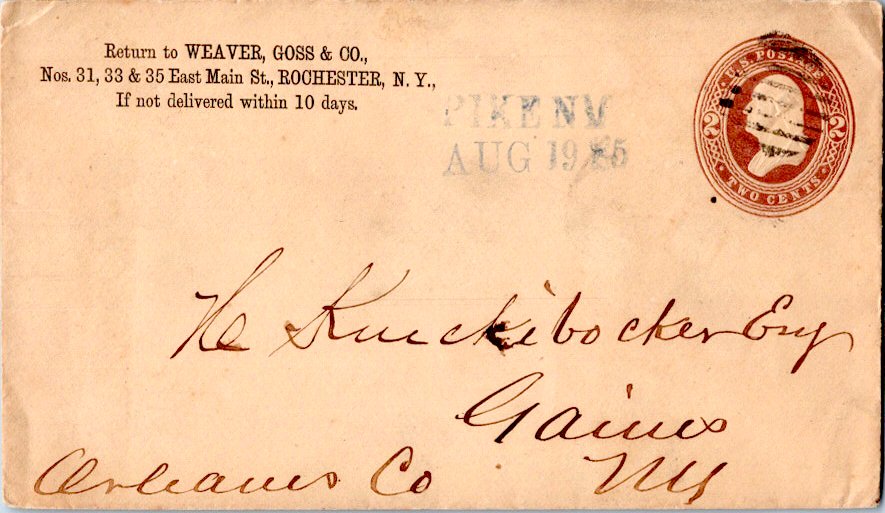 Return to WEAVER, GOSS & CO.,
Nos. 31, 33 & 35 East Main St., ROCHESTER, N. Y.,
If not delivered within 10 days.
PIKE NY
AUG 19
U.S. POSTAGE
2 2
TWO CENTS
H Knickibocker Esq
Gaines
Orleans Co NY